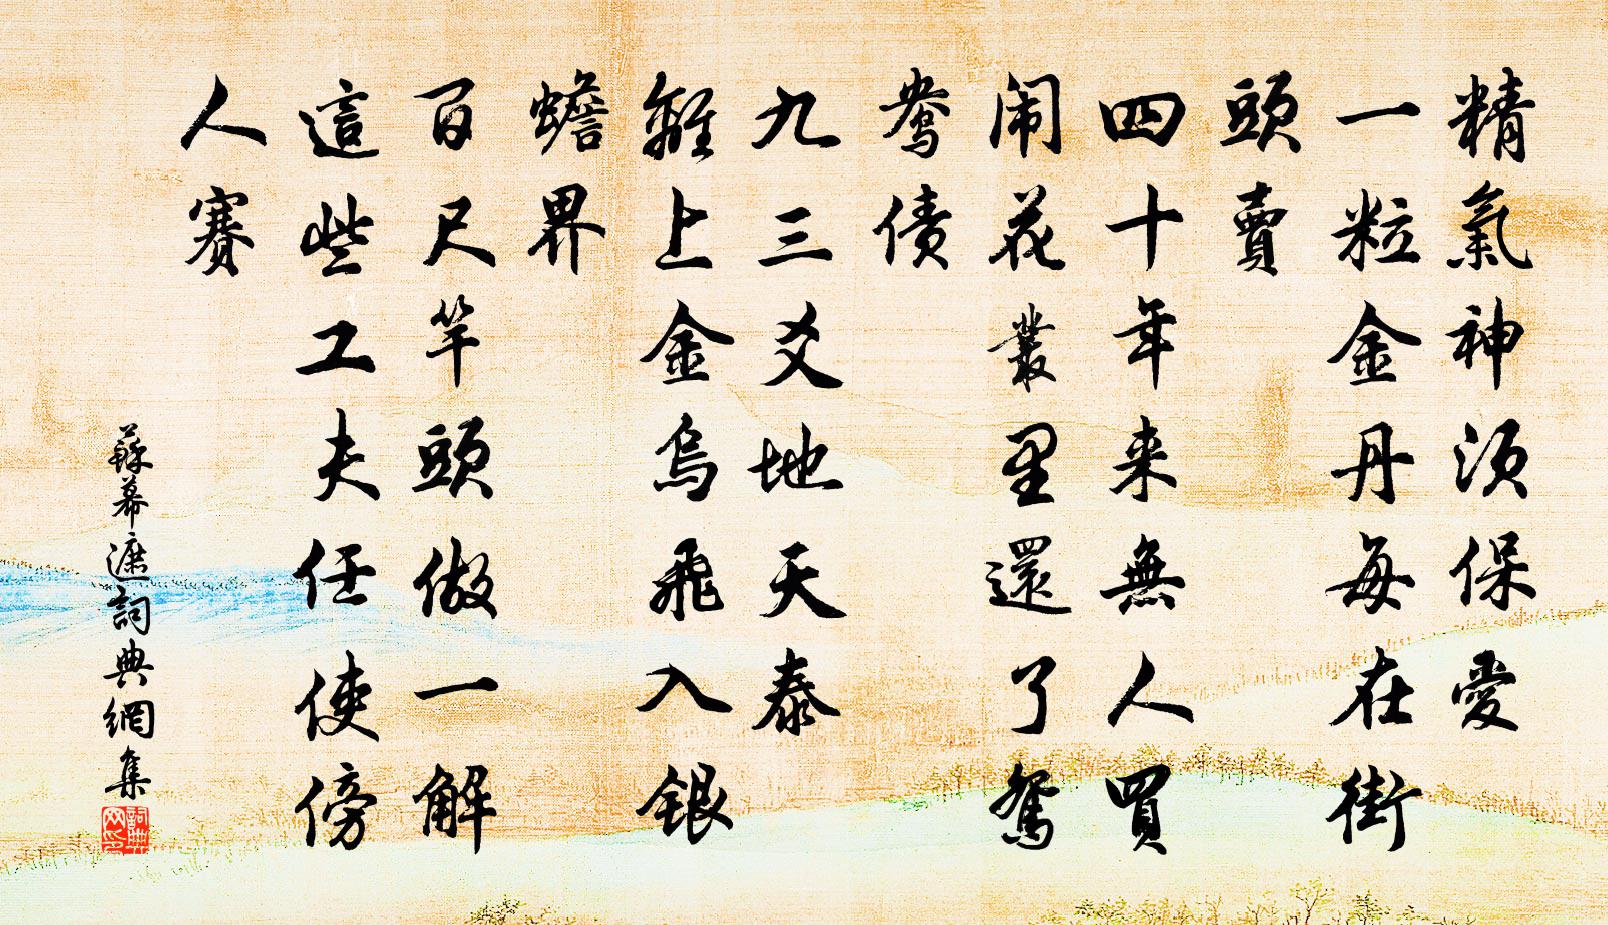 精氣神須保愛
一粒金丹每在街
頭賣
四十年来無人買
闹花叢里還了鴛
鴦债
九三爻地天泰
離上金烏飛入銀
蟾界
百尺竿頭做一解
這些工夫任使傍
人賽
蘇幕遮詞典網集
詞典网印